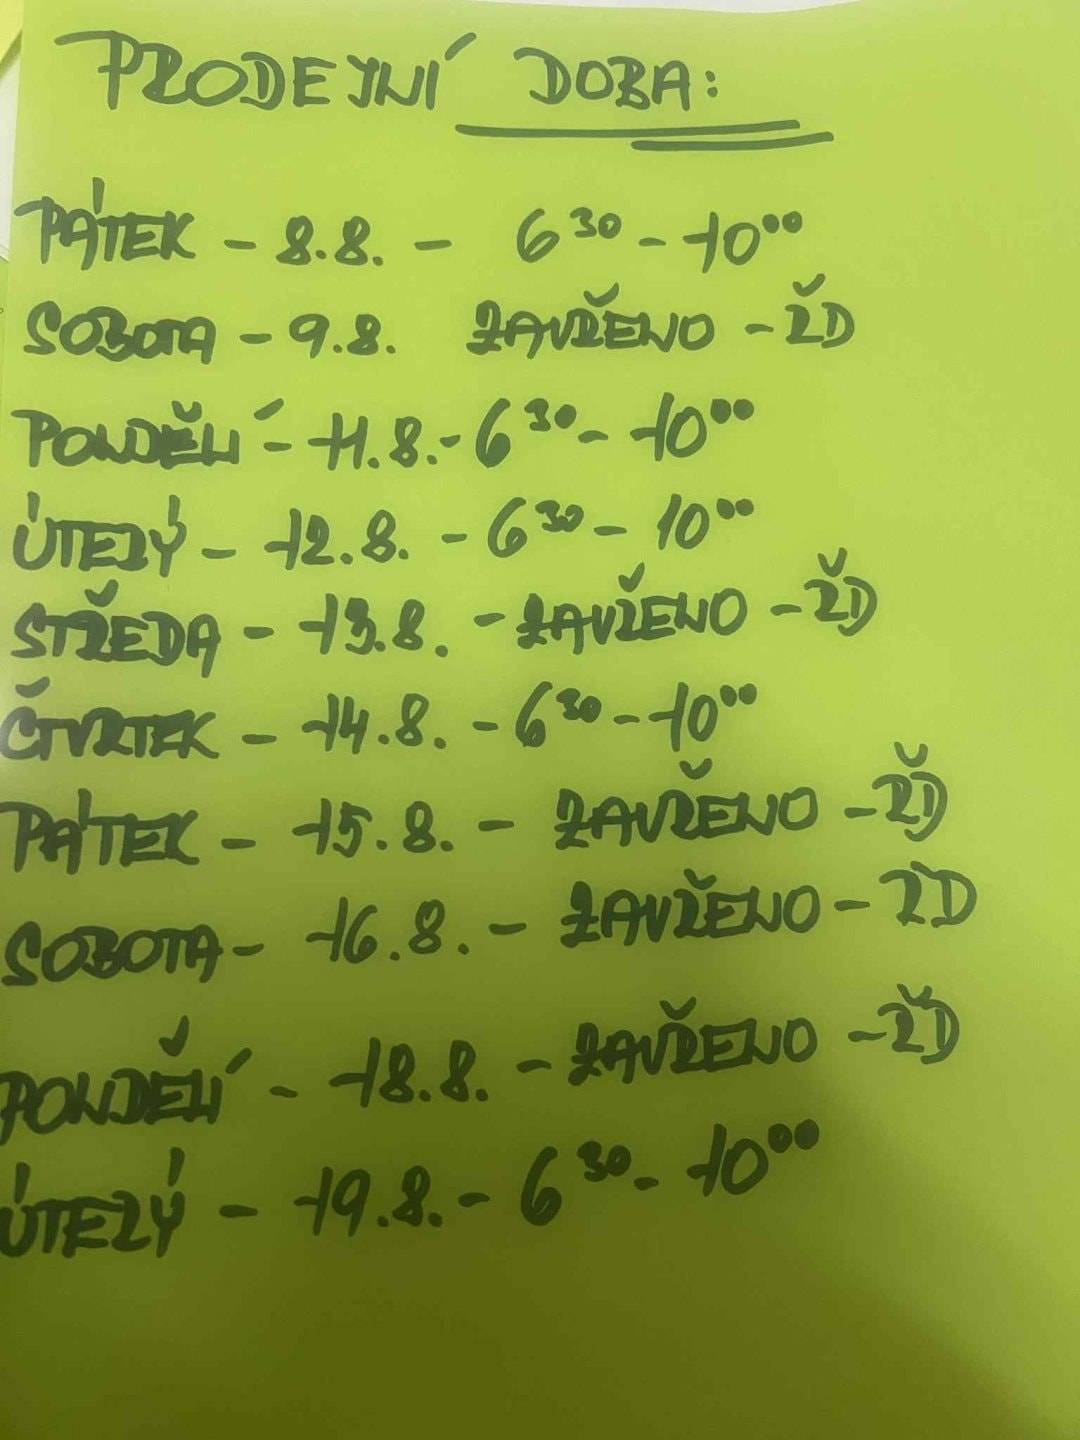 PRODEJNÍ DOBA:
PÁTEK - 8.8. - 6³⁰ - 10⁰⁰
SOBOTA - 9.8. ZAVŘENO - ŘD
PONDĚLÍ - 11.8. - 6³⁰ - 10⁰⁰
ÚTERÝ - 12.8. - 6³⁰ - 10⁰⁰
STŘEDA - 13.8. - ZAVŘENO - ŘD
ČTVRTEK - 14.8. - 6³⁰ - 10⁰⁰
PÁTEK - 15.8. - ZAVŘENO - ŘD
SOBOTA - 16.8. - ZAVŘENO - ŘD
PONDĚLÍ - 18.8. - ZAVŘENO - ŘD
ÚTERÝ - 19.8. - 6³⁰ - 10⁰⁰